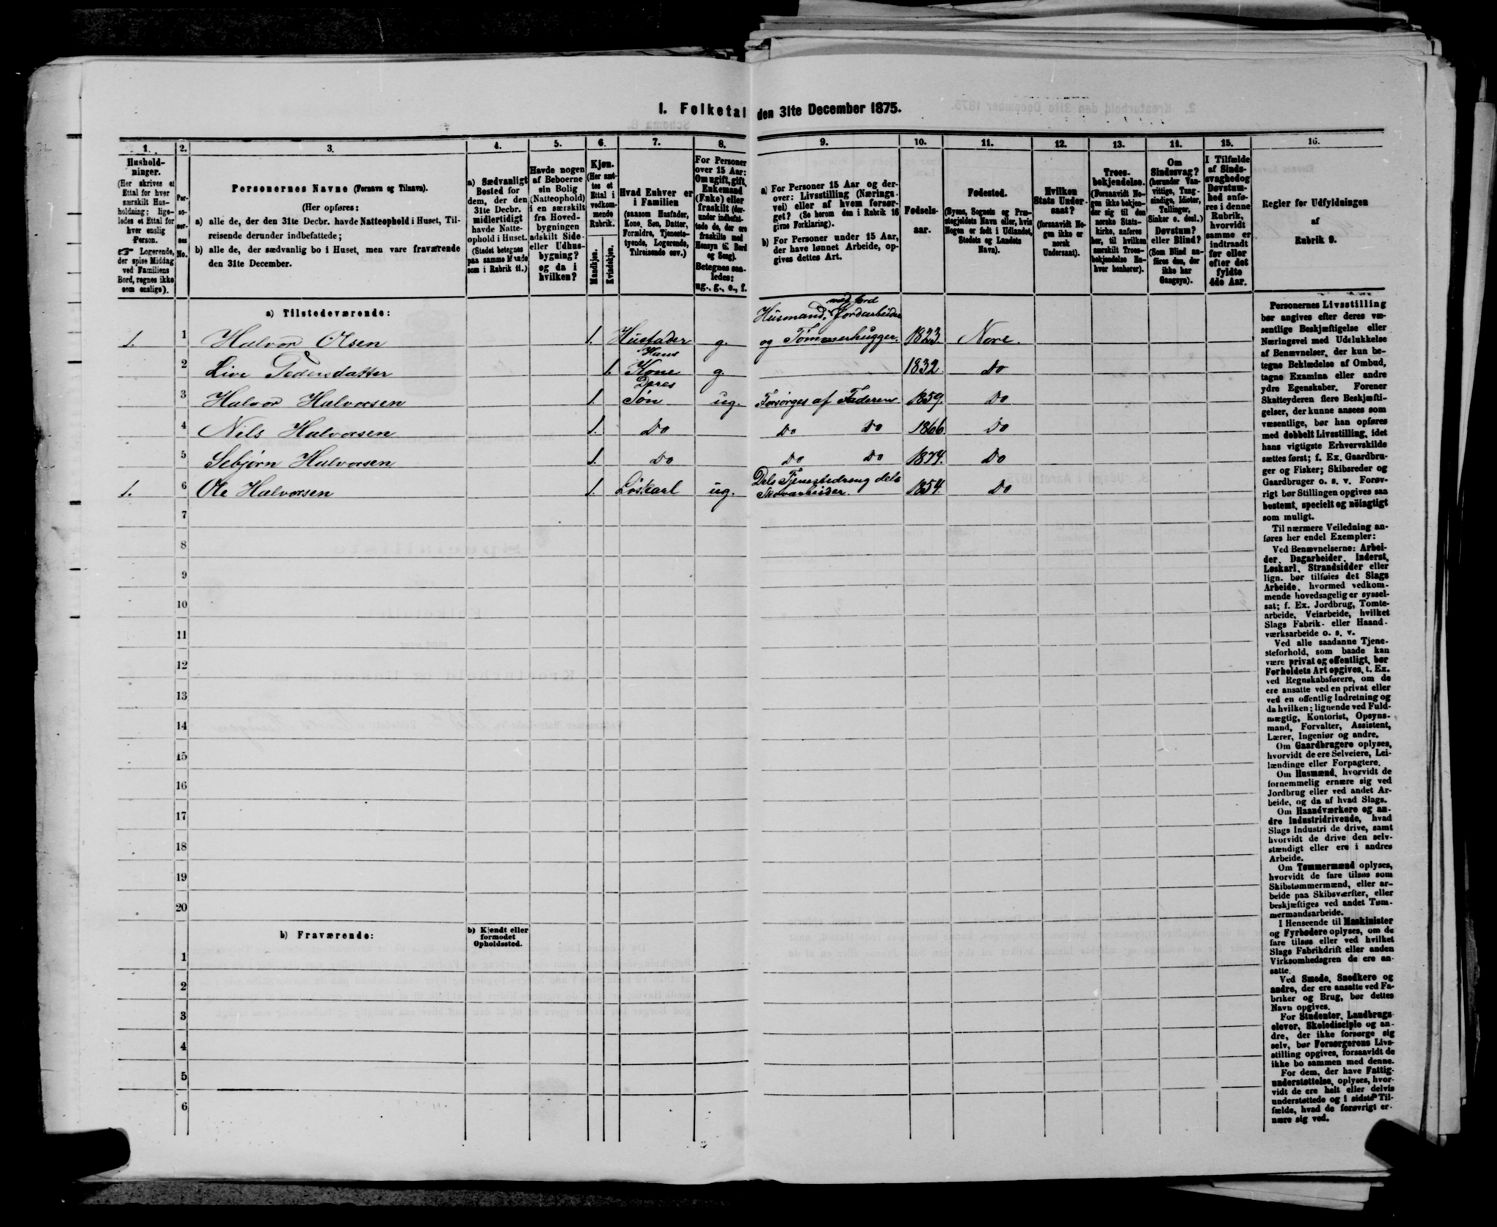 I. Folketal den 31te December 1875.
1.
2.
3.
4.
5.
6.
7.
8.
9.
10.
11.
12.
13.
14.
15.
16.
Hushold-
ninger.
(Her skrives et
Ettal for hver
særskilt Hus-
holdning; lige-
ledes et Ettal for
hver enslig
Person.
Logerende,
der spise Middag
ved Familiens
Bord, regnes ikke
som enslige).
Per-
so-
ner-
nes
No.
Personernes Navne (Fornavn og Tilnavn).
(Her opføres:
a) alle de, der den 31te Decbr. havde Natteophold i Huset, Til-
reisende derunder indbefattede;
b) alle de, der sædvanlig bo i Huset, men vare fraværende
den 31te December.
a) Sædvanligt
Bosted for
dem, der den
31te Decbr.
midlertidigt
havde Natte-
ophold i Huset.
(Stedet betegnes
paa samme Maade
som i Rubrik 11.)
Havde nogen
af Beboerne
sin Bolig
(Natteophold)
i en særskilt
fra Hoved-
bygningen
adskilt Side-
eller Udhus-
bygning?
og da i
hvilken?
Kjøn.
(Her sæt-
tes et
Ettal i
vedkom-
mende
Rubrik.
Mandkjøn.
Kvindekjøn.
Hvad Enhver er
i Familien
(saasom Husfader,
Kone, Søn, Datter,
Forældre, Tjeneste-
tyende, Logerende,
Tilreisende osv.)
For Personer
over 15 Aar:
Om ugift, gift,
Enkemand
(Enke) eller
fraskilt
Betegnes saa-
ledes:
ug., g., e., f.
a) For Personer 15 Aar og der-
over: Livsstilling (Nærings-
vei) eller af hvem forsør-
get? (Se herom den i Rubrik 16
givne Forklaring).
b) For Personer under 15 Aar,
der have lønnet Arbeide, op-
gives dettes Art.
Fødsels-
aar.
Fødested.
(Byens, Sognets og Præ-
stegjeldets Navn eller, hvis
Nogen er født i Udlandet,
Stedets og Landets
Navn).
Hvilken
Stats Under-
saat?
(forsaavidt No-
gen ikke er
norsk
Undersaat).
Troes-
bekjendelse.
(Forsaavidt No-
gen ikke bekjen-
der sig til den
norske Stats-
kirke, anføres
her, til hvilken
særskilt Troes-
bekjendelse En-
hver henhører).
Om
Sindssvag?
(herunder Van-
vittige, Tung-
sindige, Idioter,
Tullinger,
Sinker o. desl.)
Døvstum?
eller Blind?
(Som Blind an-
føres den, der
ikke har
Gangsyn).
I Tilfælde
af Sinds-
svaghed og
Døvstum-
hed anfø-
res i denne
Rubrik,
hvorvidt
samme er
indtraadt
før eller
efter det
fyldte
4de Aar.
Regler for Udfyldningen
af
Rubrik 9.
a) Tilstedeværende:
1. 1 Halvor Olsen 1. Husfader g. Husmand med Jord, Jordarbeider og Tømmerhugger. 1823. Nore.
2 Live Tedersdatter 1. Hans Kone g 1832 do
3 Halvor Halvorsen 1. Deres Søn ug. Forsørges af Faderen 1859. Do
4 Nils Halvorsen 1. Do Do Do 1866. Do
5 Sebjørn Halvorsen 1. Do Do Do 1874. Do
1. 6 Ole Halvorsen 1. Løskarl ug. Dels Tjenestedreng dels Skovarbeider. 1854. Do
7
8
9
10
11
12
13
14
15
16
17
18
19
20
b) Fraværende:
b) Kjendt eller
formodet
Opholdssted.
1
2
3
4
5
6
Personernes Livsstilling
bør angives efter deres væ-
sentlige Beskjæftigelse eller
Næringsvei med Udelukkelse
af Benævnelser, der kun be-
tegne Beklædelse af Ombud,
tagne Examina eller andre
ydre Egenskaber. Forener
Skatteyderen flere Beskjæfti-
gelser, der kunne ansees som
væsentlige, bør han opføres
med dobbelt Livsstilling, idet
hans vigtigste Erhvervskilde
sættes først; f. Ex. Gaardbru-
ger og Fisker; Skibsreder og
Gaardbruger o. s. v. Forøv-
rigt bør Stillingen opgives saa
bestemt, specielt og nöiagtigt
som muligt.
Til nærmere Veiledning an-
føres her endel Exempler:
Ved Benævnelserne: Arbei-
der, Dagarbeider, Inderst,
Løskarl, Strandsidder eller
lign. bør tilføies det Slags
Arbeide, hvormed vedkom-
mende hovedsagelig er syssel-
sat; f. Ex. Jordbrug, Tomte-
arbeide, Veiarbeide, hvilket
Slags Fabrik- eller Haand-
værksarbeide o. s. v.
Ved alle saadanne Tjene-
steforhold, som baade kan
være privat og offentligt, bør
Forholdets Art opgives, t. Ex.
ved Regnskabsførere, om de
ere ansatte ved en privat eller
ved en offentlig Indretning og
da hvilken; lignende ved Fuld-
mægtig, Kontorist, Opsyns-
mand, Forvalter, Assistent,
Lærer, Ingeniør og andre.
Om Gaardbrugere oplyses,
hvorvidt de ere Selveiere, Lei-
lændinge eller Forpagtere.
Om Husmænd, hvorvidt de
fornemmelig ernære sig ved
Jordbrug eller ved andet Ar-
beide, og da af hvad Slags.
Om Haandværkere og an-
dre Industridrivende, hvad
Slags Industri de drive, samt
hvorvidt de drive den selv-
stændigt eller ere i andres
Arbeide.
Om Tømmermænd oplyses,
hvorvidt de fare tilsøs som
Skibstømmermænd, eller ar-
beide paa Skibsværfter, eller
beskjæftiges ved andet Tøm-
mermandsarbeide.
I Henseende til Maskinister
og Fyrbødere oplyses, om de
fare tilsøs eller ved hvilket
Slags Fabrikdrift eller anden
Virksomhedsgren de ere an-
satte.
Ved Smede, Snedkere og
andre, der ere ansatte ved Fa-
briker og Brug, bør dettes
Navn opgives.
For Studenter, Landbrugs
elever, Skoledisciple og an-
dre, der ikke forsørge sig
selv, bør Forsørgerens Livs-
stilling opgives, forsaavidt de
ikke bo sammen med denne.
For dem, der have Fattig-
understøttelse, oplyses, hvor-
vidt de ere helt eller delvis
understøttede og i sidste Til-
fælde, hvad de forøvrigt er-
nære sig ved.